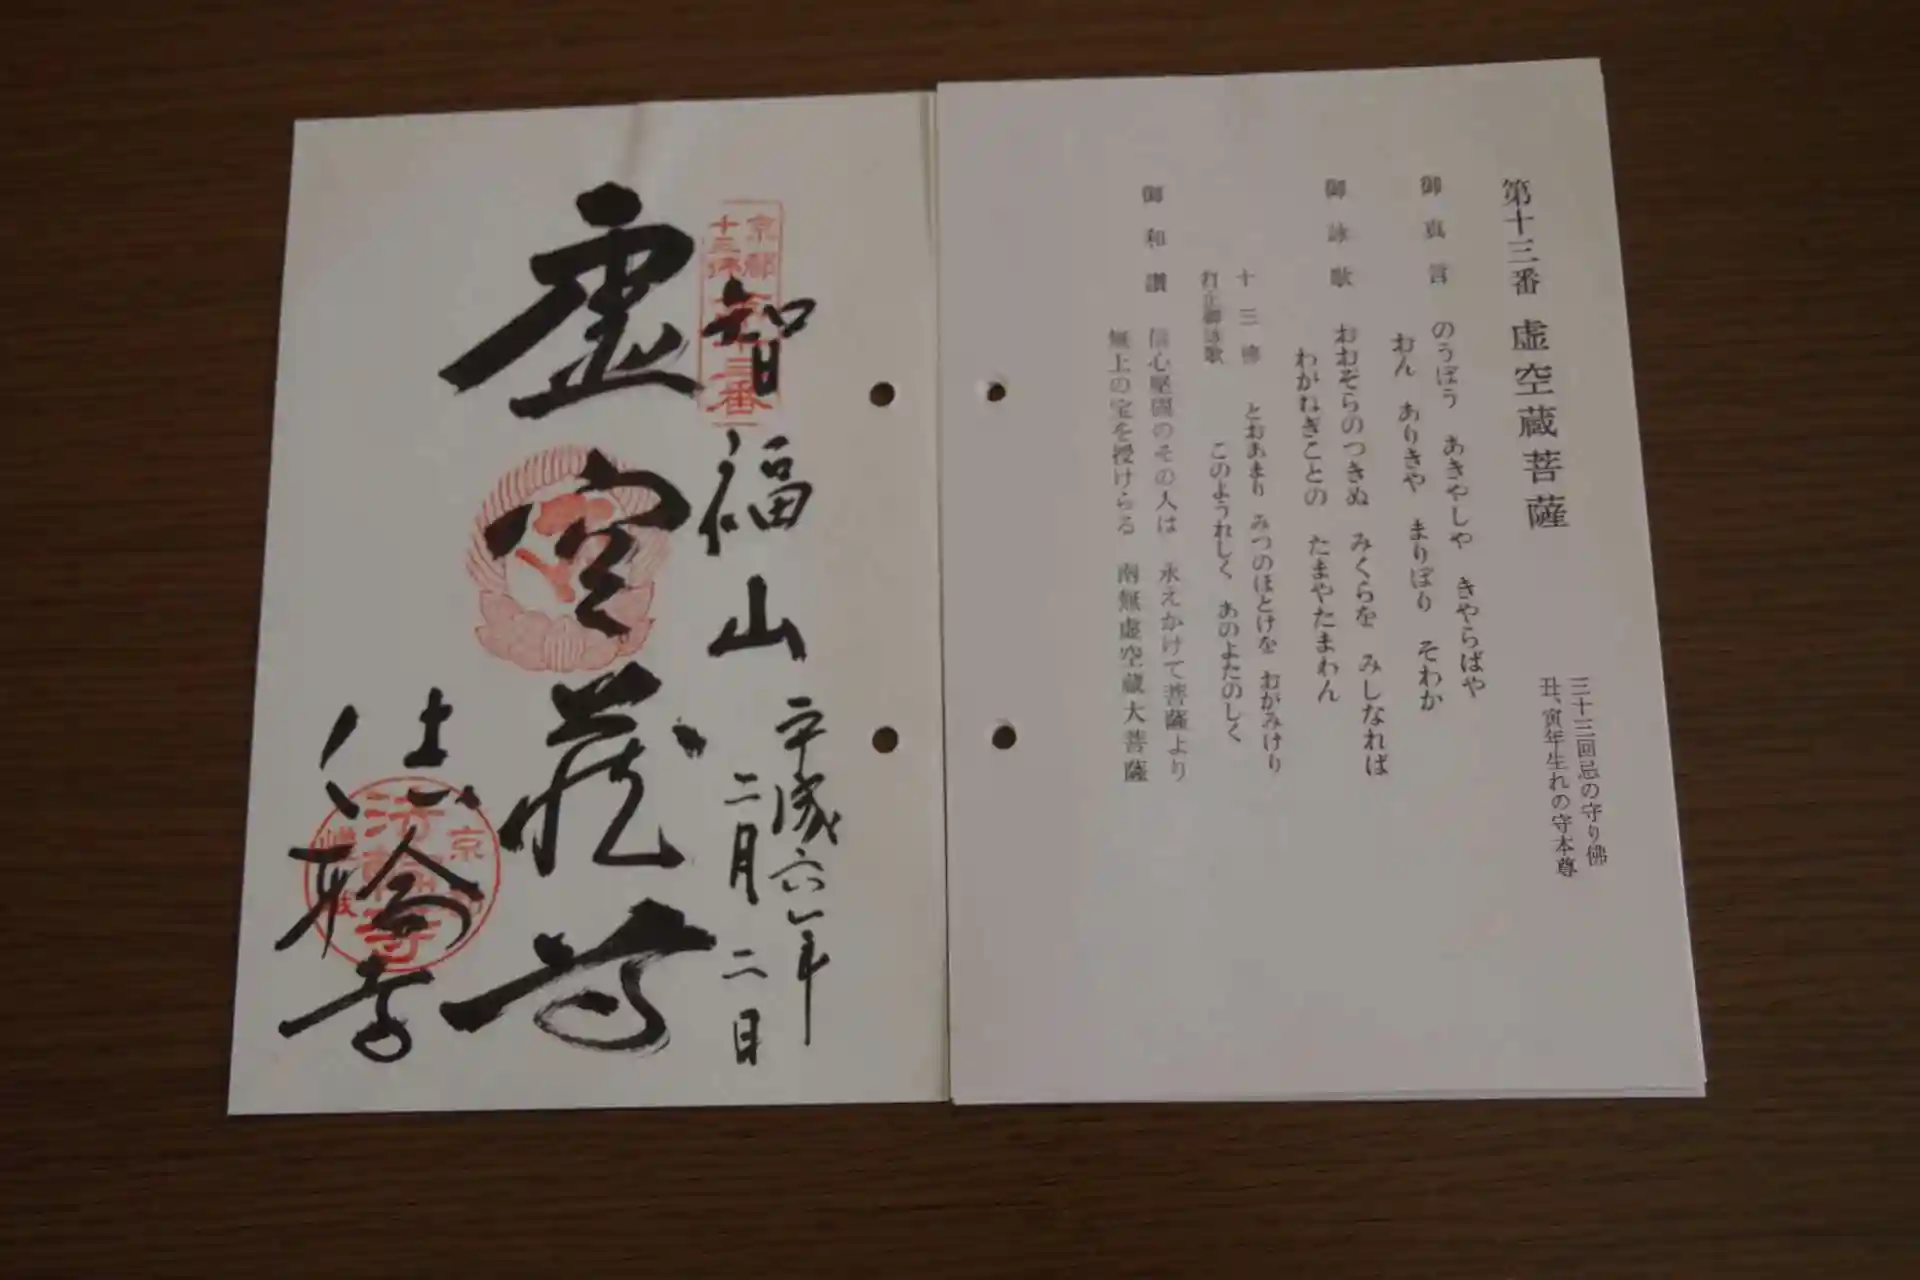 第十三番 虚空蔵菩薩
三十三回忌の守り佛
丑、寅年生れの守本尊
御真言 のうぼう あきやしや きやらばや
おん ありきや まりぼり そわか
御詠歌 おおぞらのつきぬ みくらを みしなれば
わがねぎことの たまやたまわん
十三佛 とおあまり みつのほとけを おがみけり
打止御詠歌 このようれしく あのよたのしく
御和讃 信心堅固のその人は 永えかけて菩薩より
無上の宝を授けらる 南無虚空蔵大菩薩
京都
十三佛
第十三番
智福山
平成六年
二月二日
虚空蔵尊
法輪寺
京都
法輪寺
嵯峨